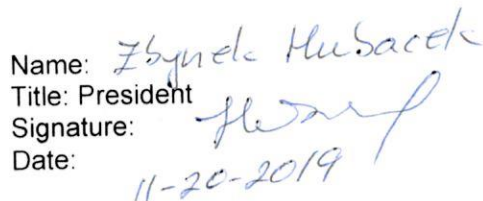 Name: Zbynek Hubacek
Title: President
Signature:
Date: 11-20-2019